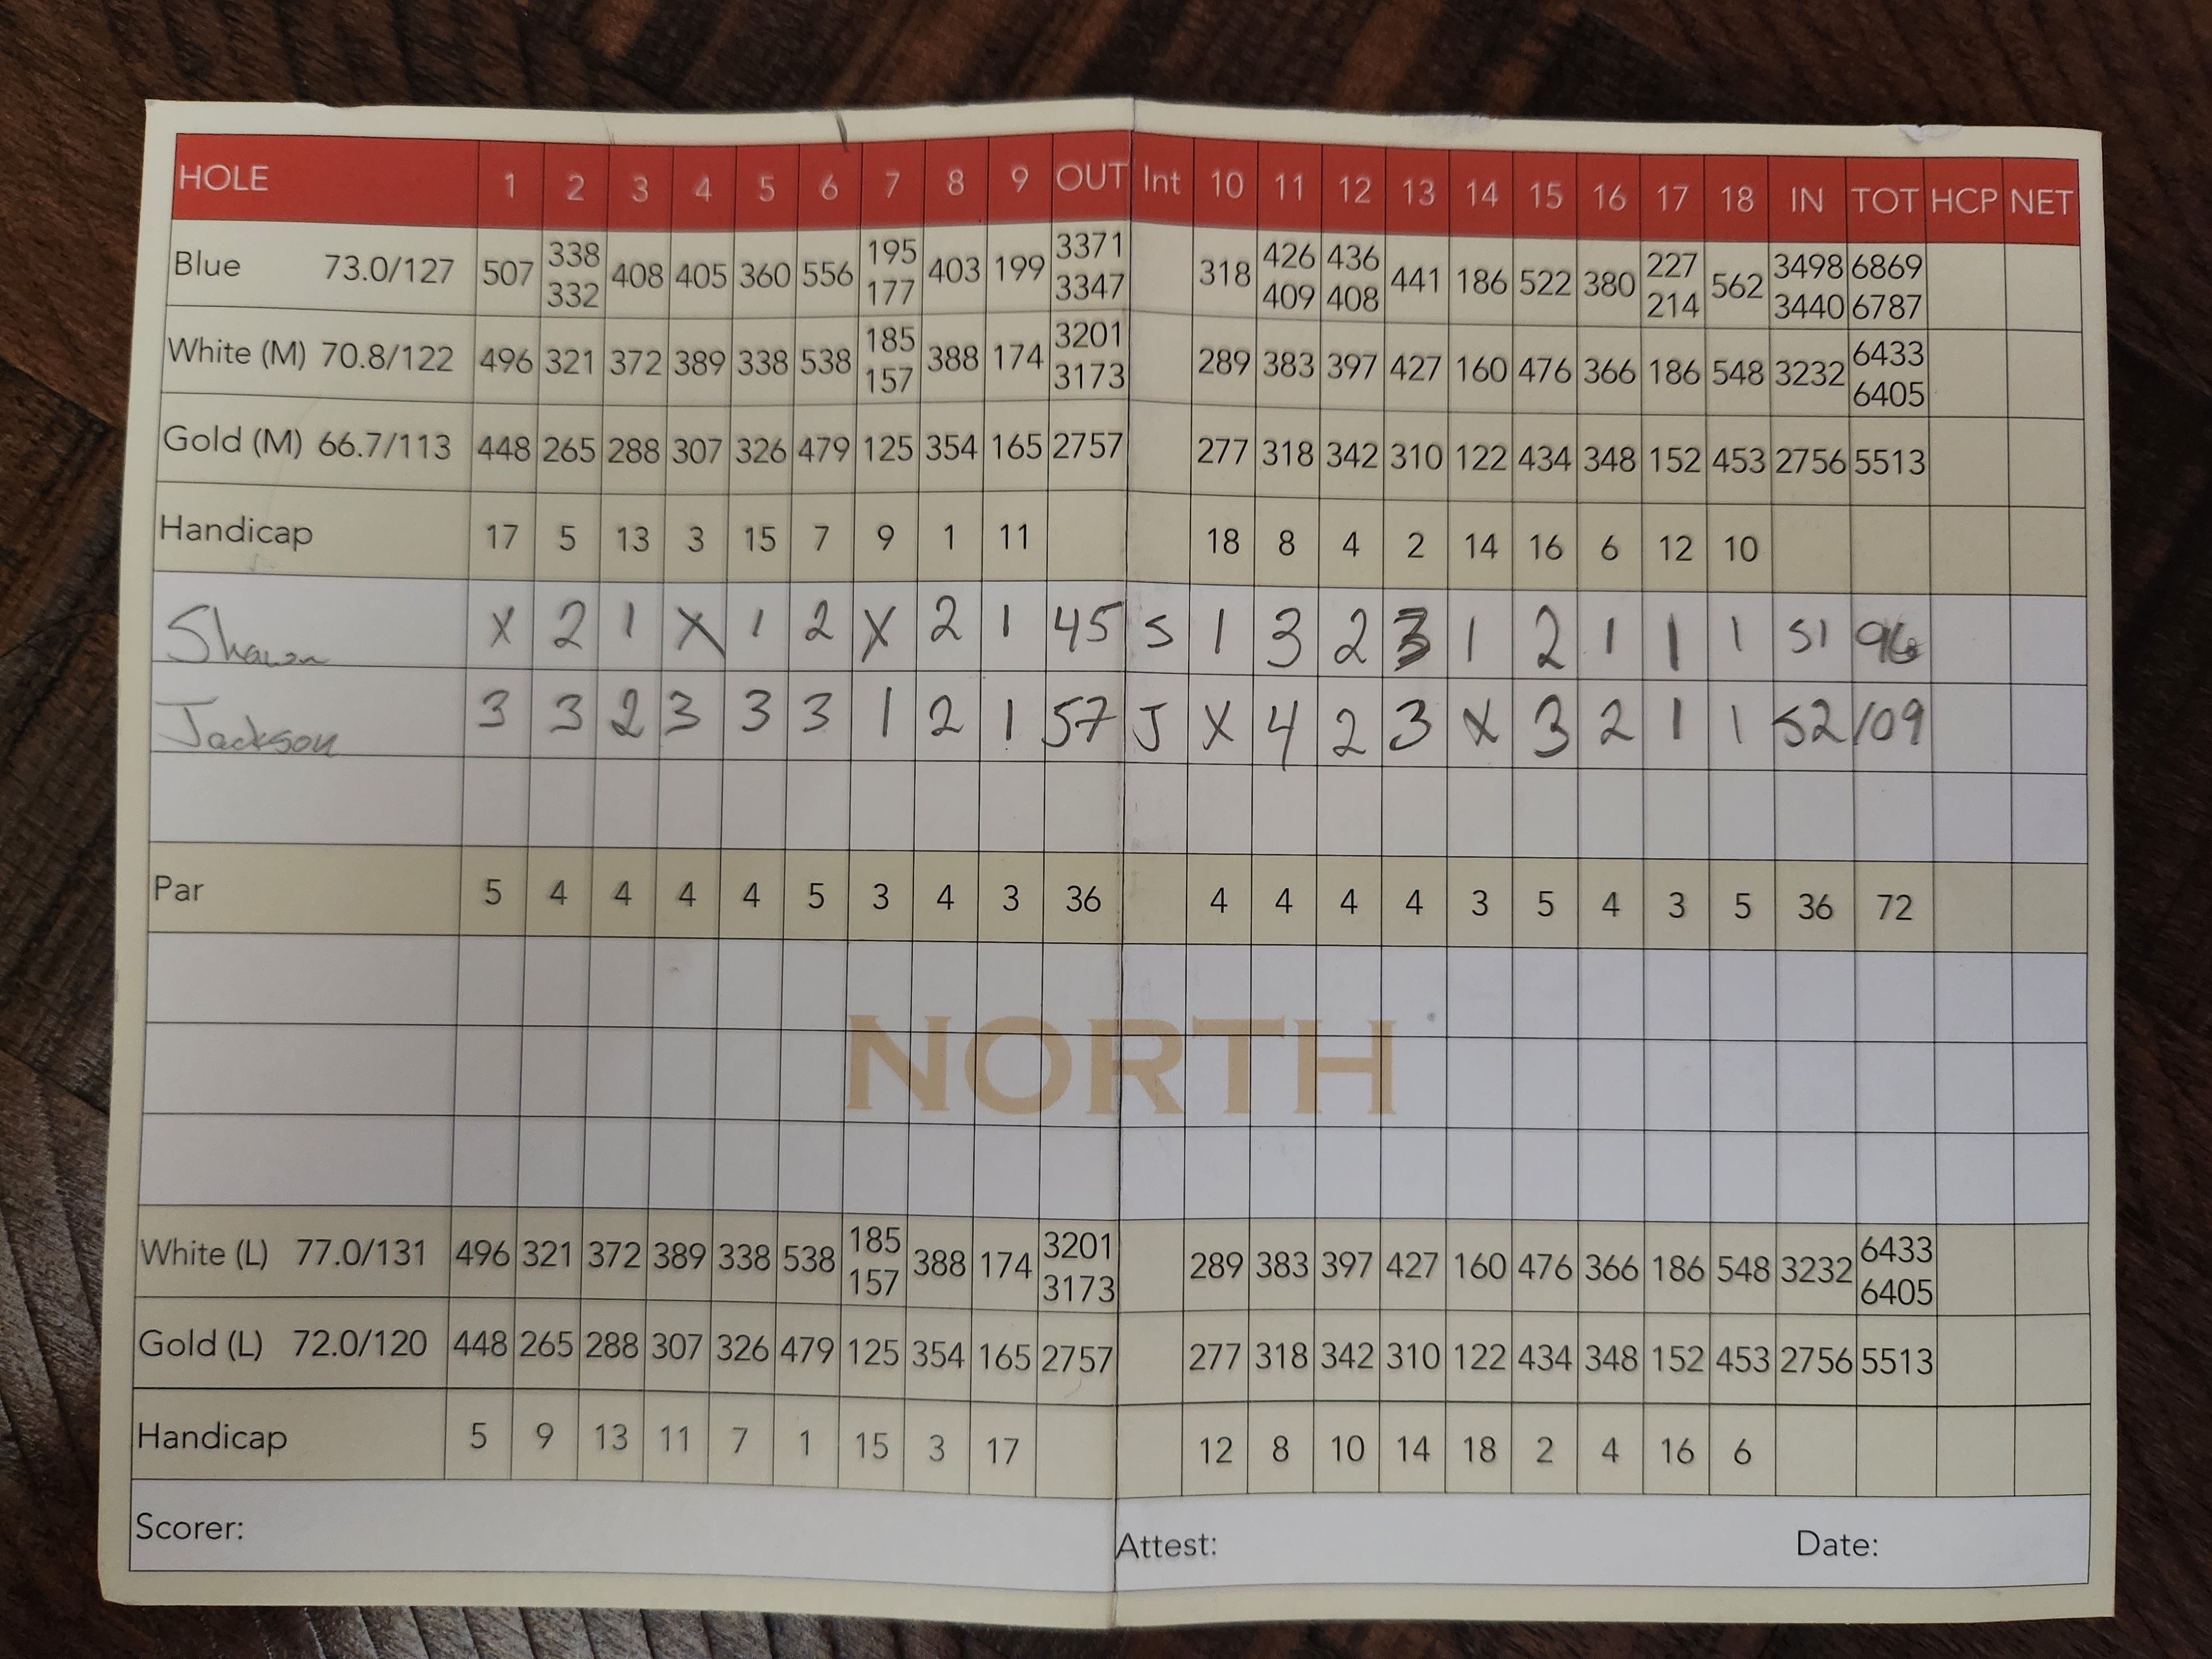 HOLE 1 2 3 4 5 6 7 8 9 OUT Int 10 11 12 13 14 15 16 17 18 IN TOT HCP NET
Blue 73.0/127 507 338 332 408 405 360 556 195 177 403 199 3371 3347 318 426 409 436 408 441 186 522 380 227 214 562 3498 3440 6869 6787
White (M) 70.8/122 496 321 372 389 338 538 185 157 388 174 3201 3173 289 383 397 427 160 476 366 186 548 3232 6433 6405
Gold (M) 66.7/113 448 265 288 307 326 479 125 354 165 2757 277 318 342 310 122 434 348 152 453 2756 5513
Handicap 17 5 13 3 15 7 9 1 11 18 8 4 2 14 16 6 12 10
Shawn X 2 1 X 1 2 X 2 1 45 S 1 3 2 3 1 2 1 1 1 51 96
Jackson 3 3 2 3 3 3 1 2 1 57 J X 4 2 3 X 3 2 1 1 52 109
Par 5 4 4 4 4 5 3 4 3 36 4 4 4 4 3 5 4 3 5 36 72
NORTH
White (L) 77.0/131 496 321 372 389 338 538 185 157 388 174 3201 3173 289 383 397 427 160 476 366 186 548 3232 6433 6405
Gold (L) 72.0/120 448 265 288 307 326 479 125 354 165 2757 277 318 342 310 122 434 348 152 453 2756 5513
Handicap 5 9 13 11 7 1 15 3 17 12 8 10 14 18 2 4 16 6
Scorer: Attest: Date: